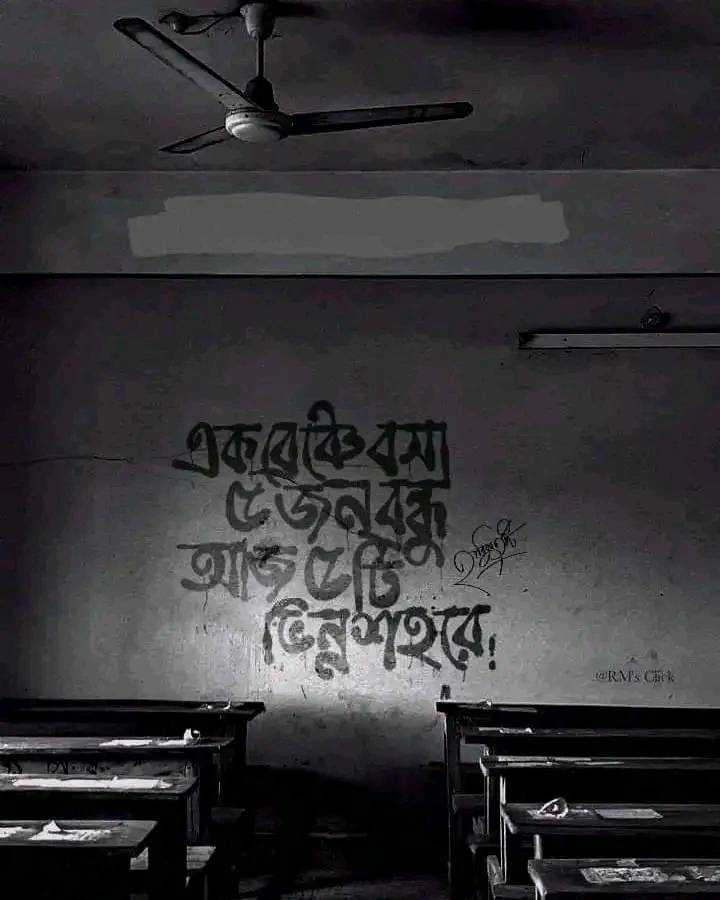 এক বেঞ্চে বসা
৫ জন বন্ধু
আজ ৫ টি
ভিন্ন শহরে!
@RM's Click